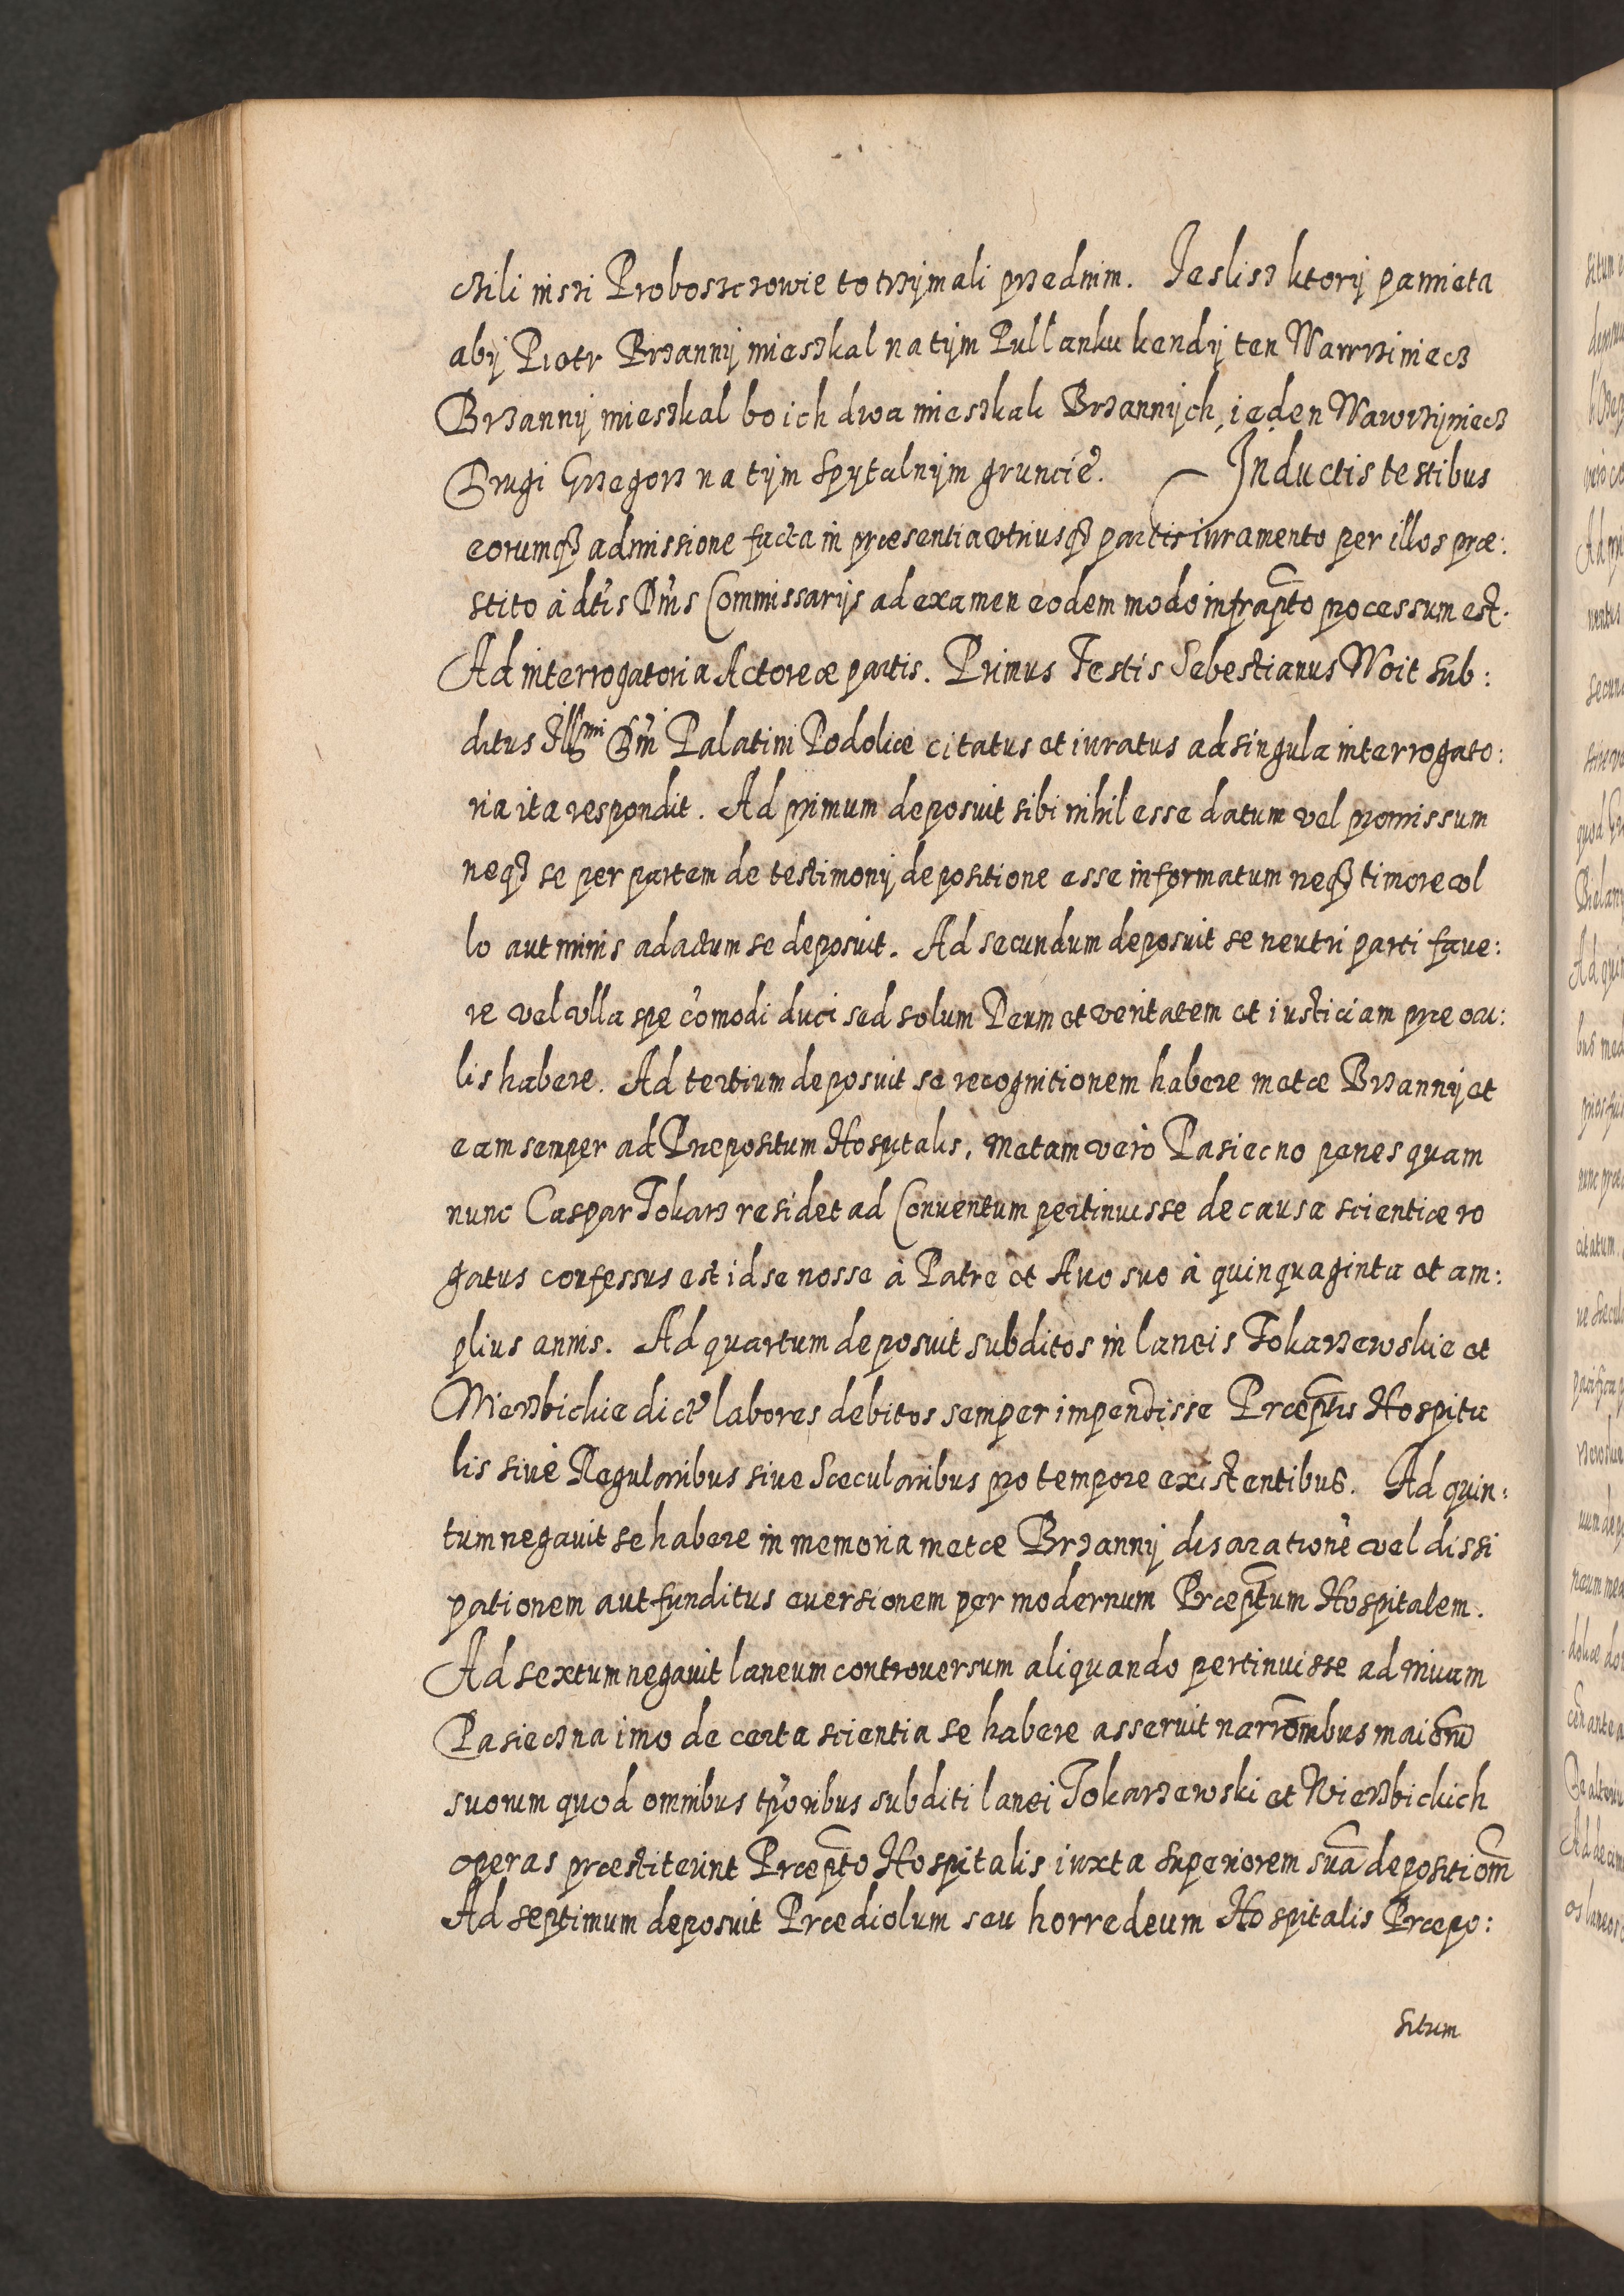 czili inszi Proboszczowie to trzÿmali przednim. Jeslisz ktorÿ pamieta
abÿ Piotr Brzannÿ mieszkal na tÿm Pullanku kendÿ ten Wawrziniecz
Brzannÿ mieszkal bo ich dwa mieszkali Brzannÿch, ieden Wawrzÿniecz
Drugi Grzegorz na tÿm Spÿtalnÿm gruncie. Inductis testibus
eorumqꝫ admissione facta in præsentia vtriusqꝫ partis iuramento per illos præ:
stito à dt̃is Dñis Commissarÿs ad examen eodem modo infrapt̃o processum est.
Ad interrogatoria Actoreæ partis. Primus Testis Sebestianus Woit sub:
ditus Illmi Dñi Palatini Podoliæ citatus et iuratus ad singula interrogato:
ria ita respondit. Ad primum deposuit sibi nihil esse datum vel promissum
neqꝫ se per partem de testimonÿ depositione esse informatum neqꝫ timore vl
lo aut minis adactum se deposuit. Ad secundum deposuit se neutri parti faue:
re vel vlla spe cõmodi duci sed solum Deum et veritatem et iusticiam præ ocu:
lis habere. Ad tertium deposuit se recognitionem habere metæ Brzannÿ et
eam semper ad Præpositum Hospitalis, Metam verò Pasiecno penes quam
nunc Caspar Tokarz residet ad Conuentum pertinuisse de causa scientiæ ro
gatus confessus est id se nosse à Patre et Auo suo à quinquaginta et am:
plius annis. Ad quartum deposuit subditos in laneis Tokarzewskie et
Wierzbickie dict̃ labores debitos semper impendisse Præpt̃is Hospita
lis siuè Regularibus siue Sæcularibus pro tempore existentibus. Ad quin:
tum negauit se habere in memoria metæ Brzannÿ disarationẽ vel dissi
pationem aut funditus euersionem per modernum Præpt̃um Hospitalem.
Ad sextum negauit laneum controuersum aliquando pertinuisse ad niuam
Pasieczna imo de certa scientia se habere asseruit narrõnibus maiorũ
suorum quod omnibus tp̃oribus subditi lanei Tokarzewski et Wierzbickich
operas præstiterint Præpt̃o Hospitalis iuxta superiorem suã depositiom̃
Ad septimum deposuit Prædiolum seu horredeum Hospitalis Præpo:
situm